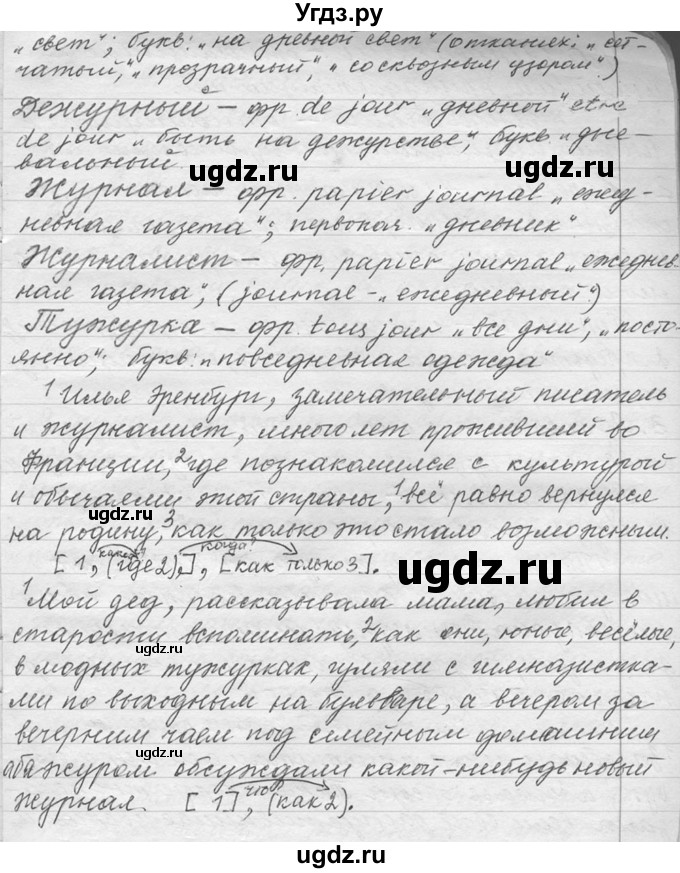 Угдз.ру
„свет"; букв: „на древной свет" (о тканях: „сет-
чатый", „прозрачный", „со сквозным узором".)
Дежурный – фр. de jour „дневной" etre
de jour „быть на дежурстве"; букв. „дне-
вальный
ugdz.ru ugdz.ru
Журнал – фр. papier journal „ежед-
невная газета"; первонач. „дневник"
ugdz.ru
Журналист – фр. papier journal „ежеднев-
ная газета"; (journal – „ежедневный".)
Тужурка – фр. tous jour „все дни", „посто-
янно"; букв: „повседневная одежда"
ugdz.ru
1 Илья Эренбург, замечательный писатель
и журналист, много лет проживший во
Франции, 2 где познакомился с культурой
и обычаями этой страны, 1 всё равно вернулся
ugdz.ru
на родину, 3 как только это стало возможным.
какой? когда?
[1, (где 2),], [как только 3].
ugdz.ru
1 Мой дед, рассказывала мама, любил в
старости вспоминать, 2 как они, юные, весёлые,
в модных тужурках, гуляли с гимназистка-
ugdz.ru
ми по выходным на бульваре, а вечером за
вечерним чаем под семейным домашним
ugdz.ru
абажуром обсуждали какой-нибудь новый
что?
журнал. [1], (как 2).
ugdz.ru
ugdz.ru